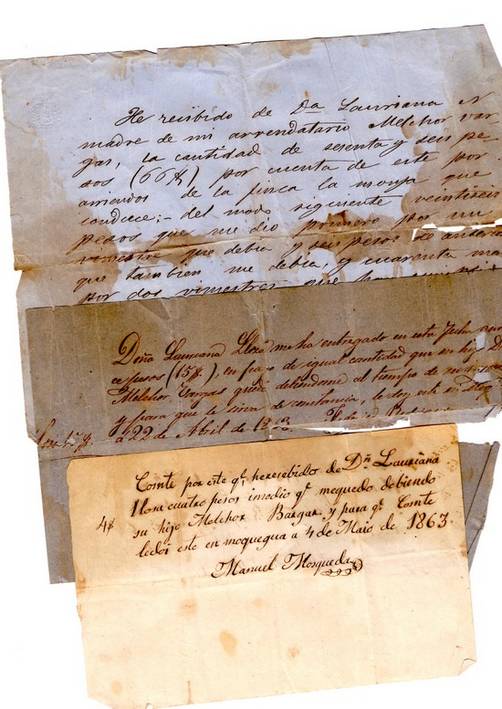 He reisbido de Da Lauriana N
madre de mi arrendatario Melchor Var
gas, la cantidad de sesenta y seis pe
sos (66$) por cuenta de este por
arriendos de la finca la monja que
conduce; del modo siguiente veinteseis
pesos que me dio primero por un
vimestre que debia y seis pesos de
que tambien me debia, y cuarenta mas
por dos vimestres que
Doña Lauriana Lloza me ha entregado en esta fecha
pesos (15$), en pago de igual cantidad que su hijo Dn
Melchor Vargas quedó debiendome al tiempo de
Y para que le sirva de constancia, le doy este en
a 22 de Abril de
Comte por este qe. he recebido de Dña Lauriana
4$ Llosa cuatro pesos imedio qe. mequedo debiendo
su hijo Melchor Bargas y para qe. Comte
ledoi este en moquegua a 4 de Maio de 1863.
Manuel Mosqueda